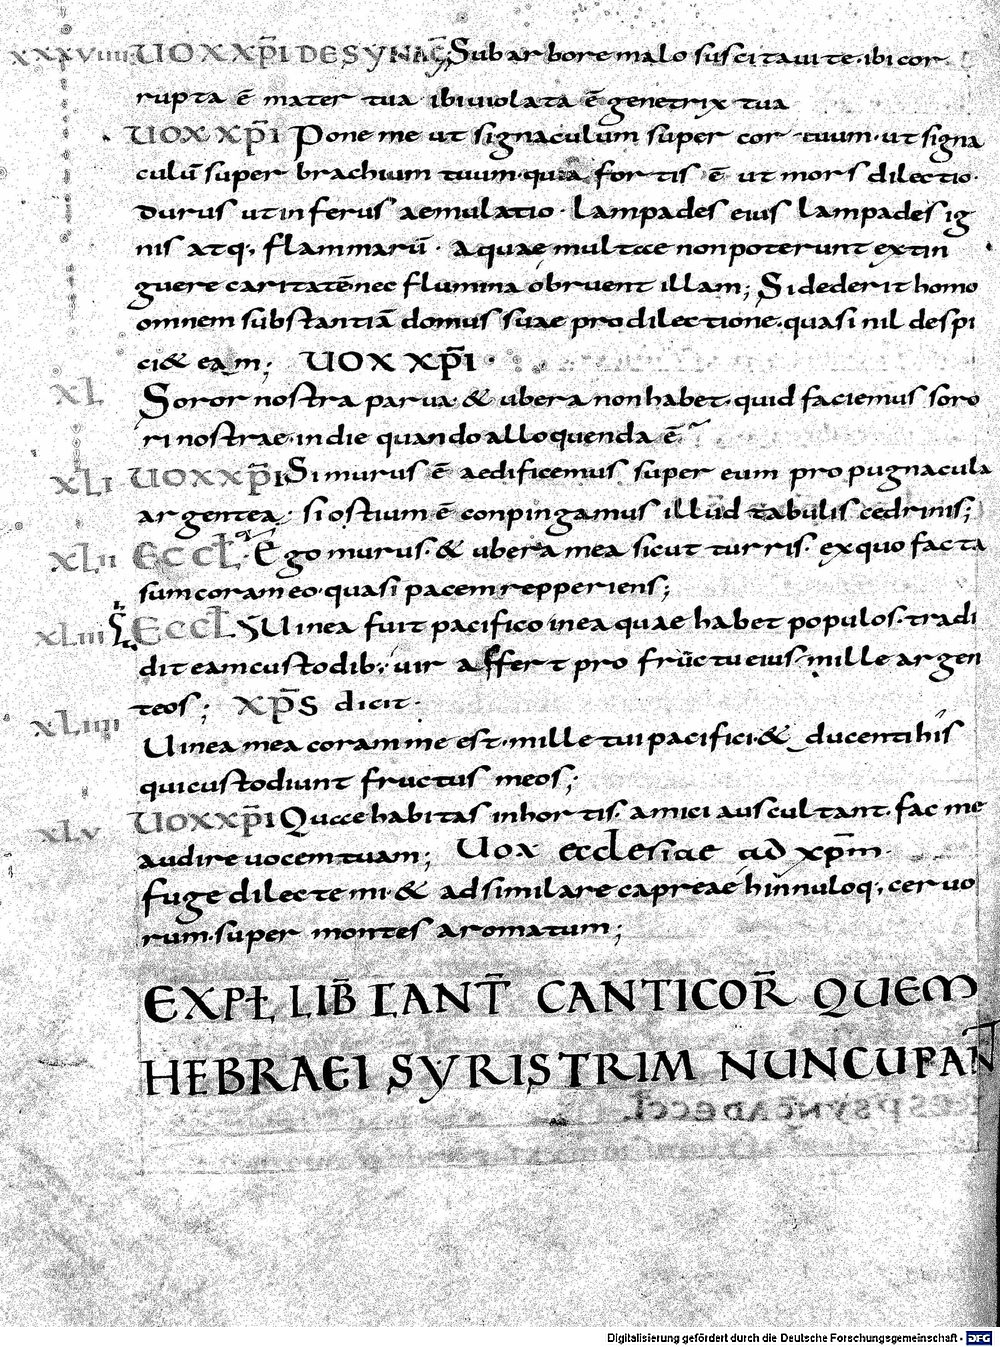 XXXVIIII UOX XP̅I DE SYNAG; Sub arbore malo suscitaui te. ibi cor
rupta ē mater tua ibi uiolata ē genetrix tua
UOX XP̅I Pone me ut signaculum super cor tuum. ut signa
culū super brachium tuum. quia fortis ē ut mors dilectio.
durus ut inferus aemulatio. Lampades eius Lampades ig
nis atq; flammarū. Aquae multae non poterunt extin
guere caritatē nec flumina obruent illam; Si dederit homo
omnem substantiā domus suae pro dilectione. quasi nil despi
ci& eam; UOX XP̅I.
XL Soror nostra parua. & ubera non habet. quid faciemus soro
ri nostrae. in die quando alloquenda ē.
XLI UOX XP̅I Si murus ē aedificemus super eum propugnacula
argentea. si ostium ē conpingamus illud tabulis cedrinis;
XLII ECCL. Ego murus. & ubera mea sicut turris. ex quo facta
sum coram eo. quasi pacem repperiens;
XLIII ECCLS Uinea fuit pacifico in ea quae habet populos. tradi
dit eam custodib; uir affert pro fructu eius. mille argen
teos; XP̅S dicit.
XLIIII Uinea mea coram me est. mille tui pacifici. & ducenti his
qui custodiunt fructus meos;
XLV UOX XP̅I Quae habitas in hortis. amici auscultant. fac me
audire uocem tuam; Uox ecclesiae ad xp̅m.
fuge dilecte mi. & adsimilare capreae hinnuloq; ceruo
rum. super montes aromatum;
EXPŁ LIB̅ CANT̅ CANTICOR̅ QUEM
HEBRAEI SYRISTRIM NUNCUPANT̅
Digitalisierung gefördert durch die Deutsche Forschungsgemeinschaft - DFG